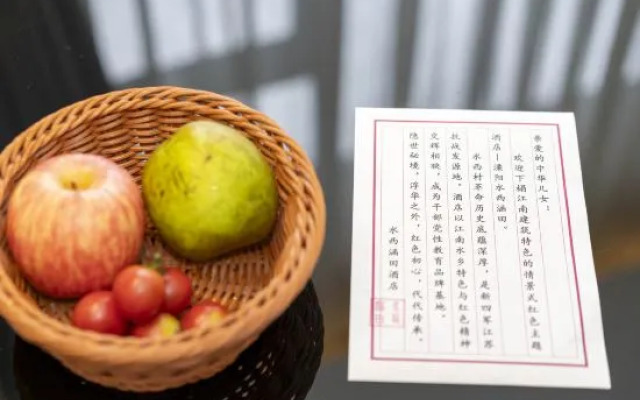 亲爱的中华儿女：
欢迎下榻江南建筑特色的情景式红色主题
酒店—溧阳水西涵田。
水西村革命历史底蕴深厚，是新四军江苏
抗战发源地。酒店以江南水乡特色与红色精神
交辉相映，成为干部党性教育品牌基地。
隐世秘境，浮华之外，红色初心，代代传承。
水西涵田酒店